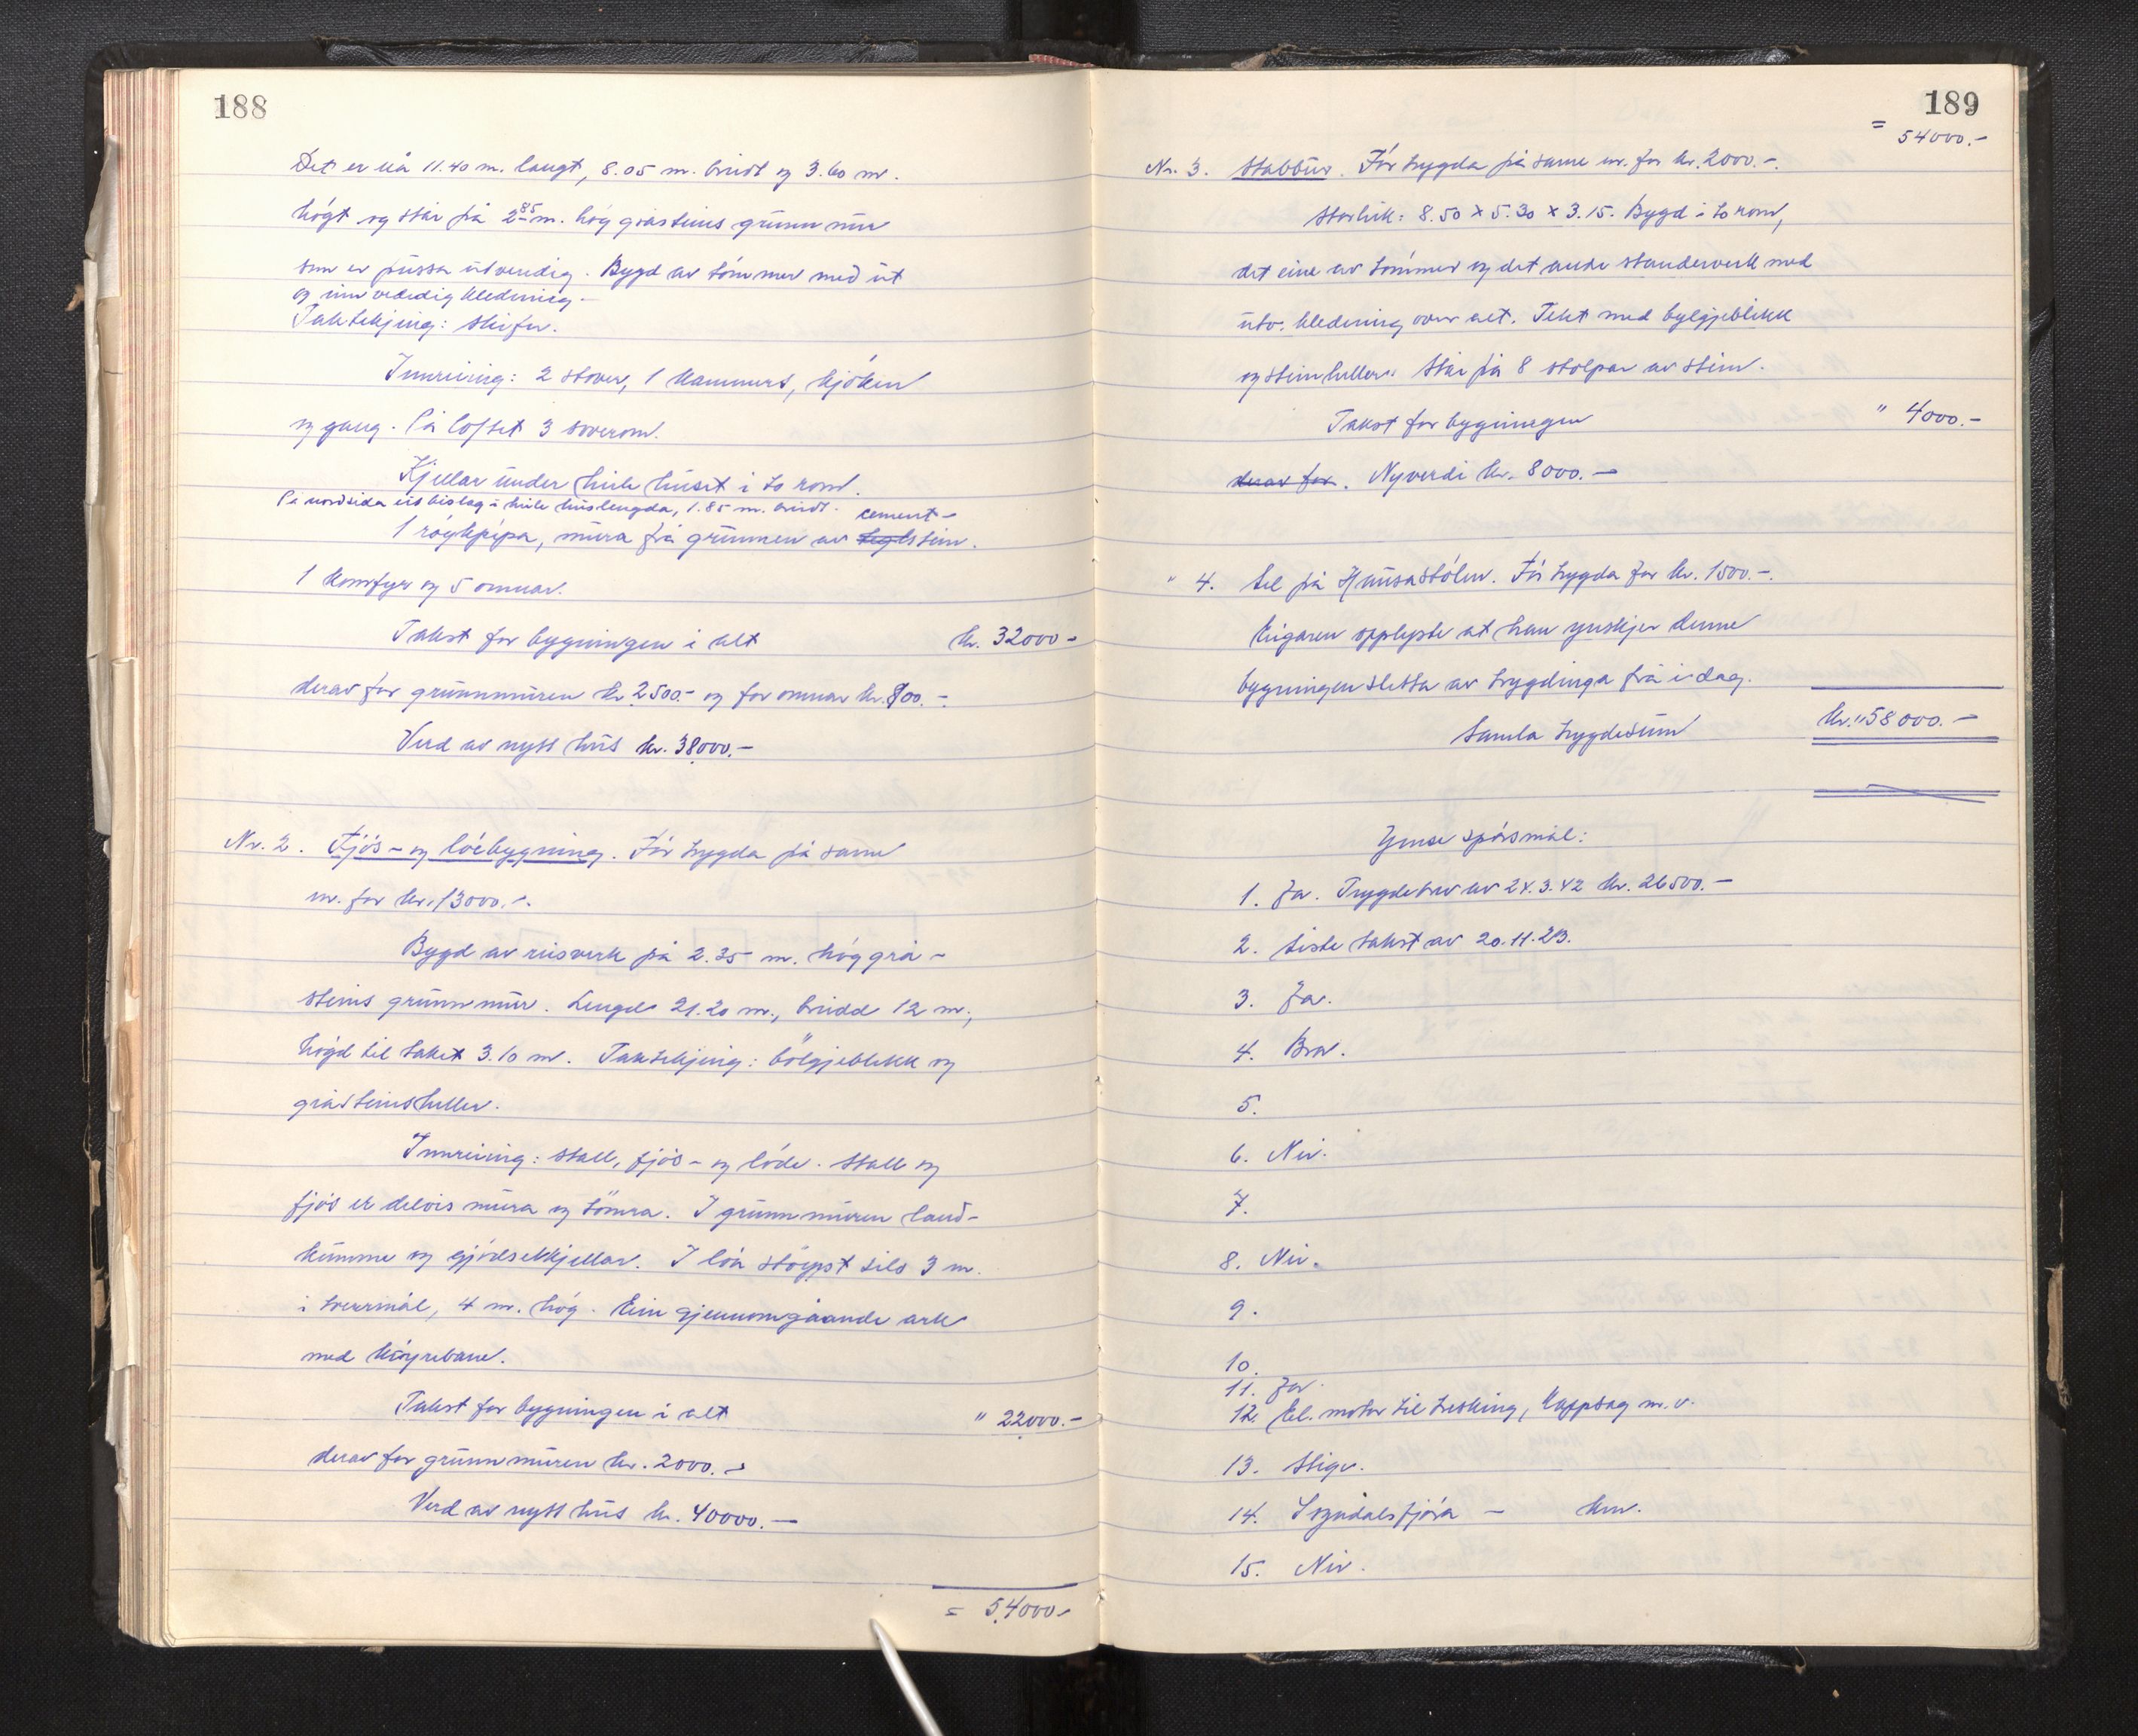 188
Det er nå 11.40 m. langt, 8.05 m. breidt og 3.60 m.
høgt og står på 2.85 m. høg gråsteins grunnmur
som er pussa utvendig. Bygd av tømmer med ut
og innvendig kledning.
Taktekjing: skifer.
Innreiing: 2 stover, 1 kammers, kjøken
og gang. På loftet 3 soverom.
Kjellar under heile huset i to rom.
På nordsida eit bislag i heile huslengda, 1.85 m. breidt.
cement-
1 røykpipa, mura frå grunnen av teglstein.
1 komfyr og 5 omnar.
Takst for bygningen i alt kr. 32000-
derav for grunnmuren kr. 2500.- og for omnar kr. 800.-
Verd av nytt hus kr. 38000.-
Nr. 2. Fjøs- og løebygning. Før trygda på same
nr. for kr. 13000.-.
Bygd av reisverk på 2.35 m. høg grå-
steins grunnmur. Lengde 21.20 m., breidd 12 m.,
høgd til taket 3.10 m. Taktekjing: bölgjeblikk og
gråsteinsheller.
Innreiing: stall, fjøs- og löde. Stall og
fjøs er delvis mura og tömra. I grunnmuren land-
kumme og gjødselkjellar. I løa støypt silo 3 m.
i tverrmål, 4 m. høg. Ein gjennomgåande ark
med køyrebane.
Takst for bygningen i alt " 22000.-
derav for grunnmuren kr. 2000.-
Verd av nytt hus kr. 40000.-
= 54000-
189
= 54000.-
Nr. 3. Stabbur. Før trygda på same nr. for kr. 2000.-.
Storleik: 8.50 x 5.30 x 3.15. Bygd i to rom,
det eine av tømmer og det andre standerverk med
utv. kledning over alt. Tekt med bylgjeblikk
og steinheller. Står på 8 stolpar av stein.
Takst for bygningen " 4000.-
derav for. Nyverdi kr. 8000.-
" 4. Sel på Hunsastølen. Før trygda for kr. 1500.-.
Eigaren opplyste at han ynskjer denne
bygningen sletta av trygdinga frå i dag.
Samla trygdesum kr. "58000.-
Ymse spørsmål:
1. Ja. Trygdebrev av 24.3.42 kr. 26500.-
2. Siste takst av 20.11.23.
3. Ja.
4. Bra.
5.
6. Nei.
7.
8. Nei.
9.
10.
11. Ja.
12. El. motor til tresking, kappsag m.v.
13. Stige.
14. Sogndalsfjøra - km.
15. Nei.